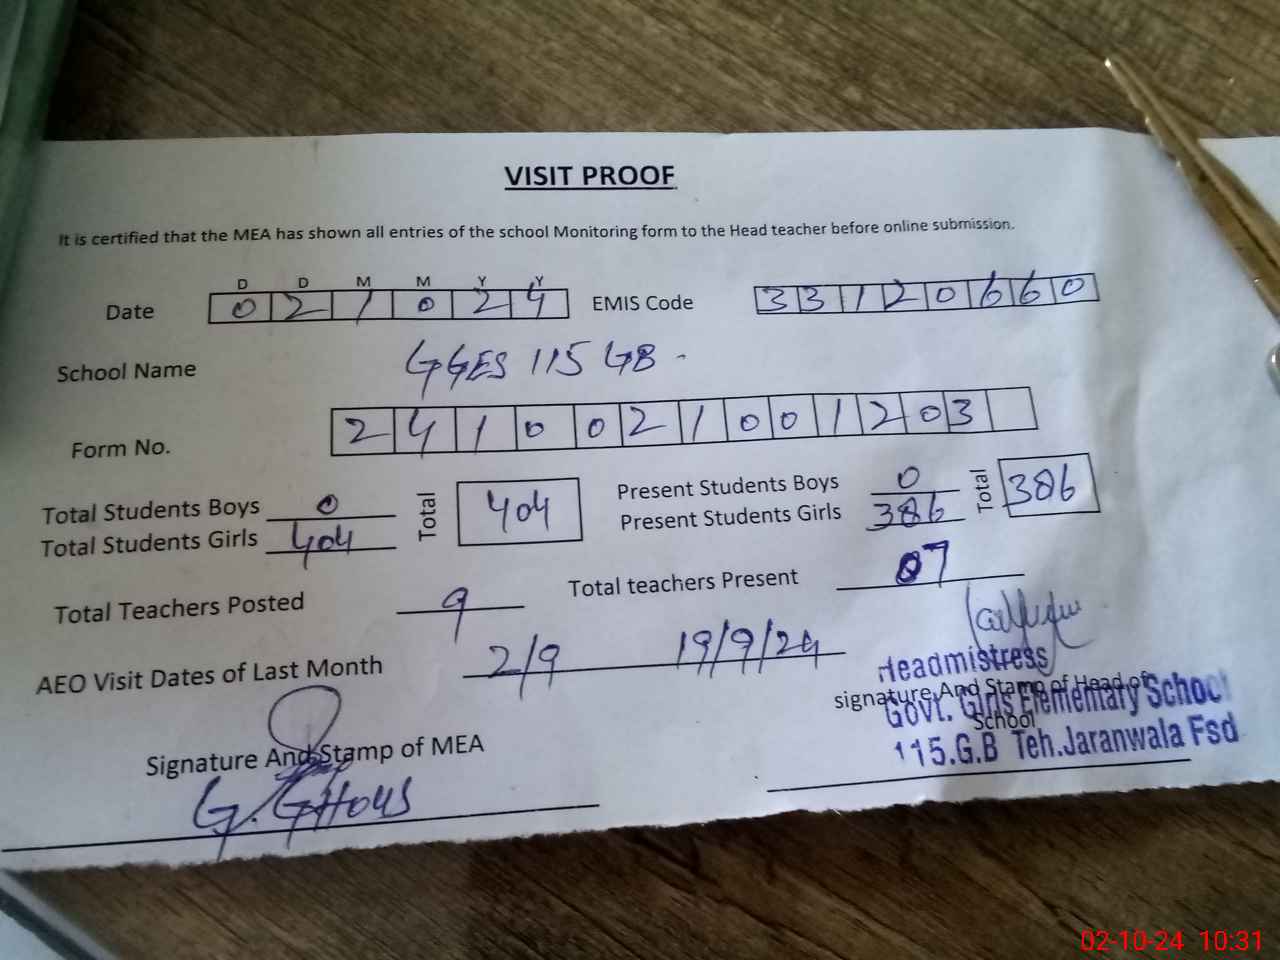 VISIT PROOF
It is certified that the MEA has shown all entries of the school Monitoring form to the Head teacher before online submission.
D D M M Y Y
Date 0 2 1 0 2 4 EMIS Code 3 3 1 2 0 6 6 0
School Name GGES 115 GB
Form No. 2 4 1 0 0 2 1 0 0 1 2 0 3
Total Students Boys 0 Total 404 Present Students Boys 0 Total 386
Total Students Girls 404 Present Students Girls 386
Total Teachers Posted 9 Total teachers Present 07
AEO Visit Dates of Last Month 2/9 19/9/24
Headmistress
signature And Stamp of Head of
Govt. Girls Elementary School
School
115.G.B Teh.Jaranwala Fsd
Signature And Stamp of MEA
G. GHOUS
02-10-24 10:31